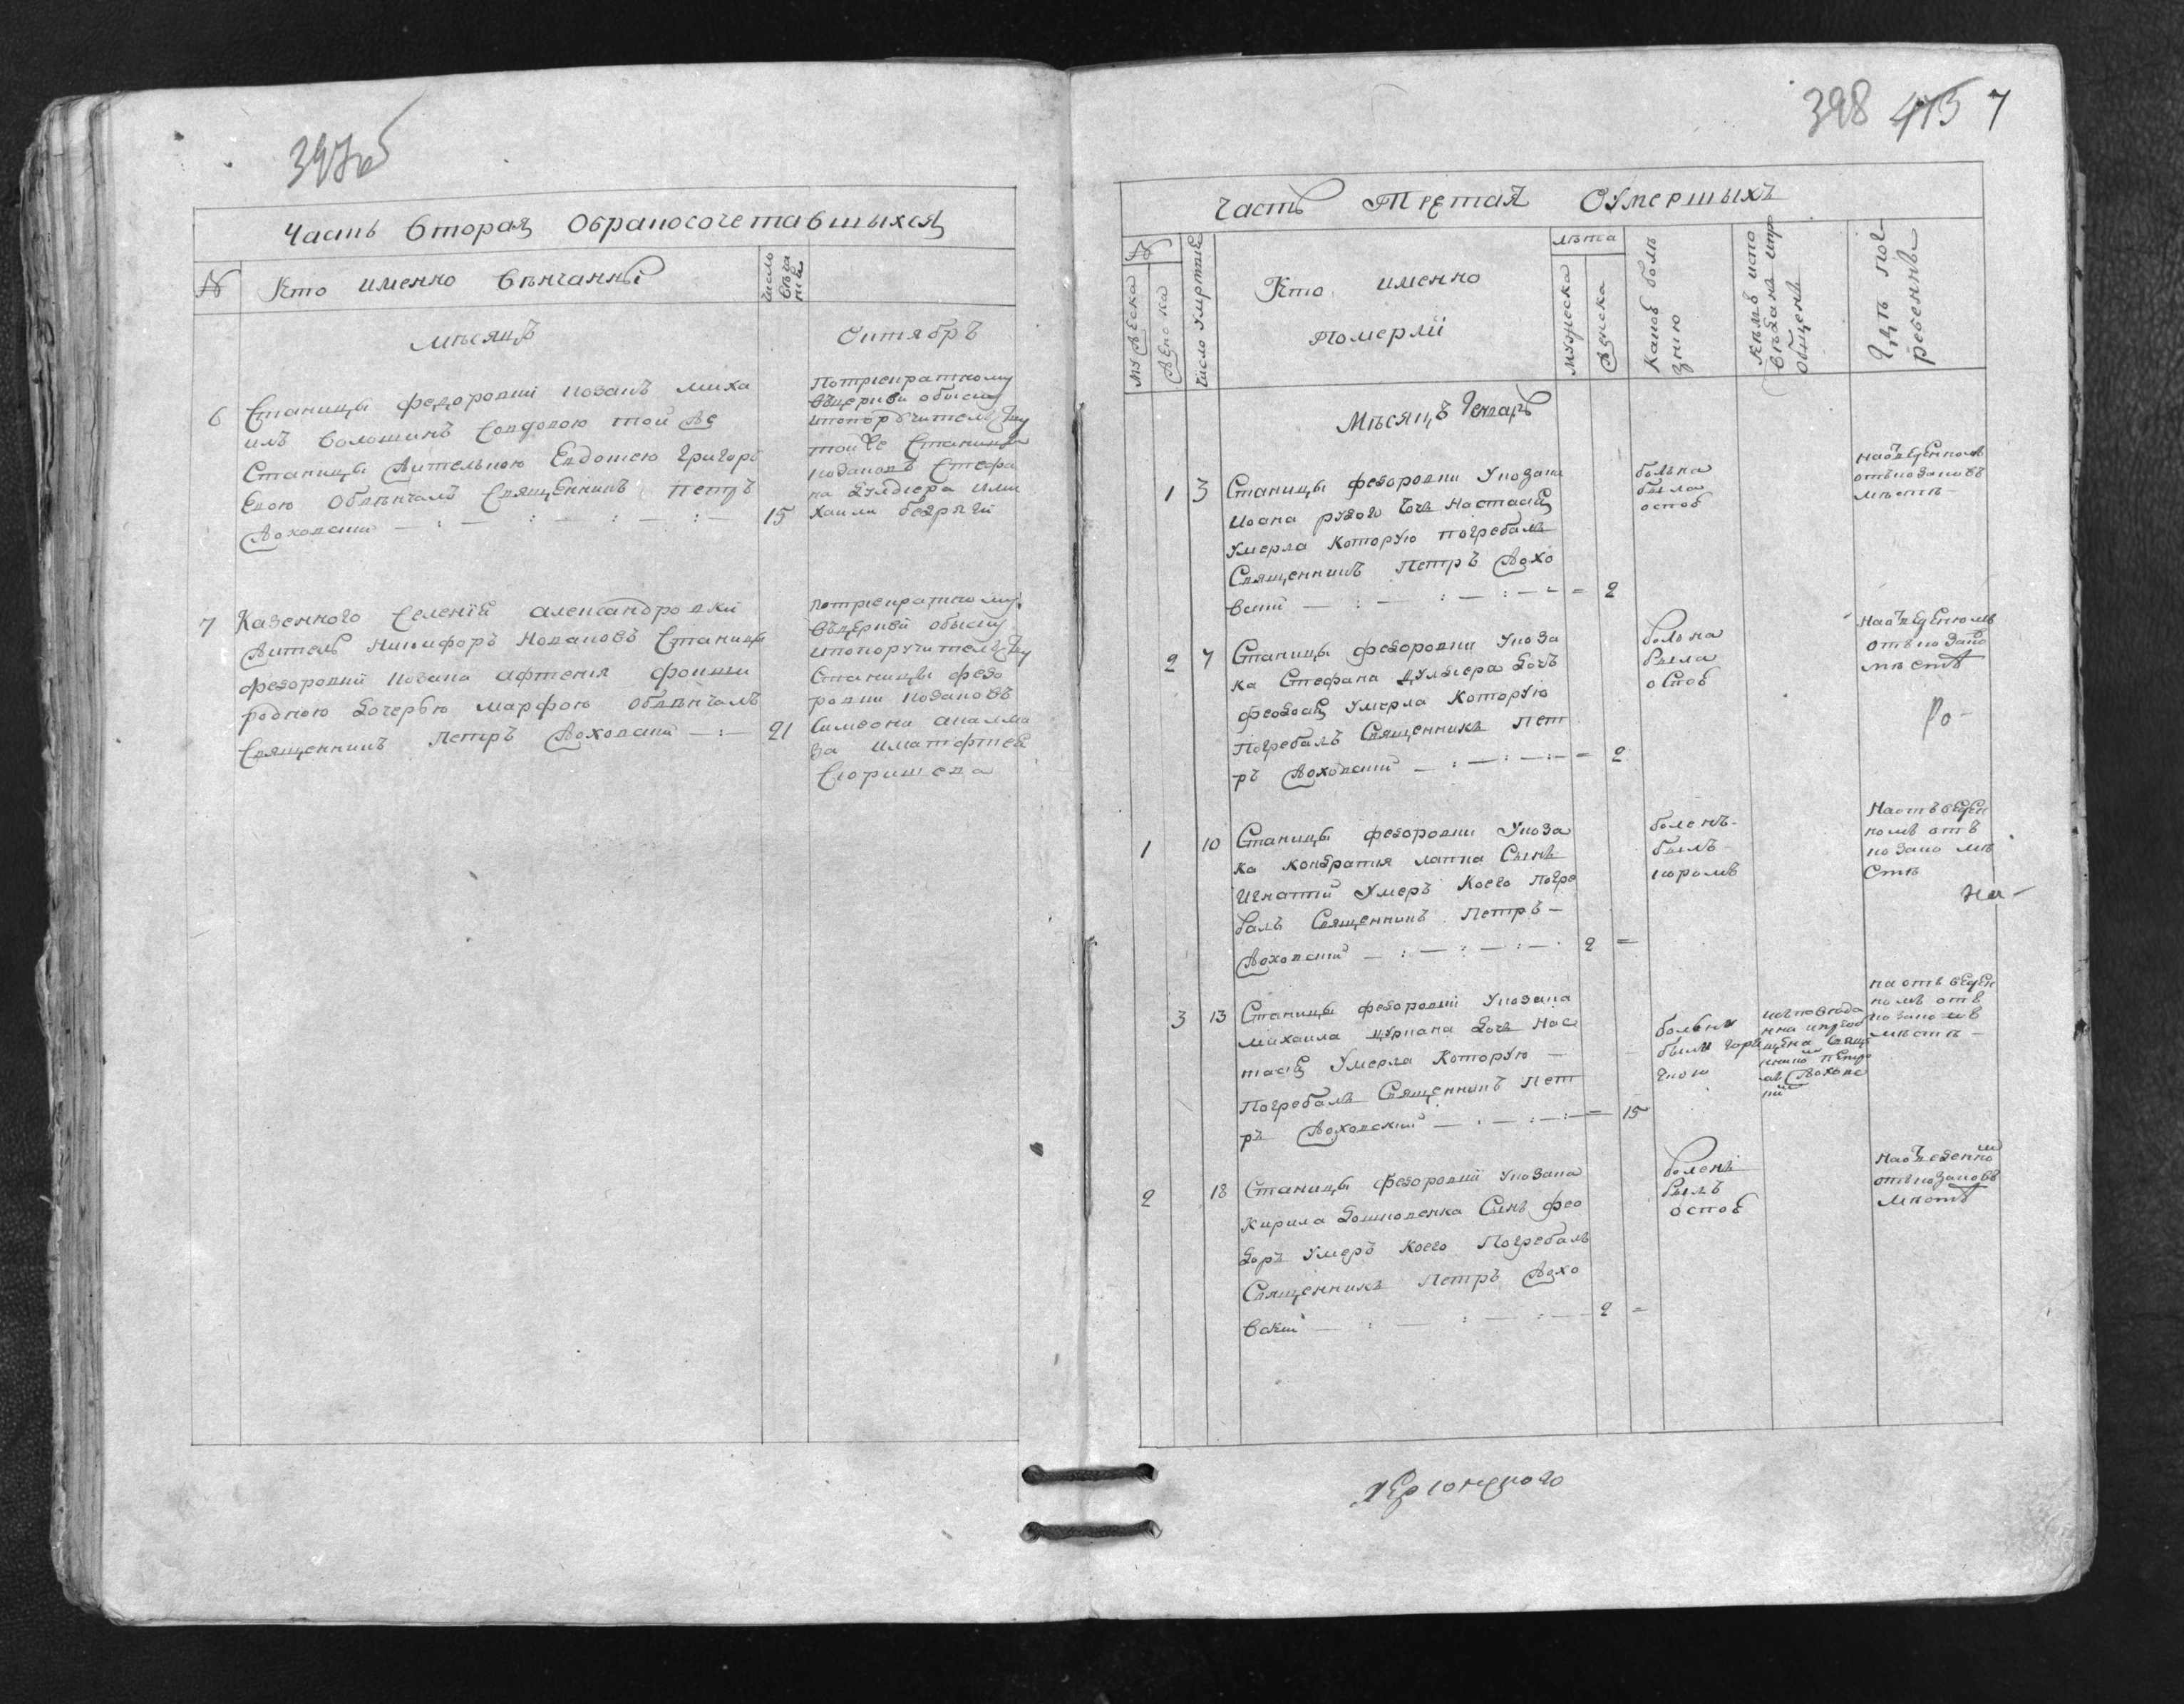 397об
Часть вторая обракосочетавшыхся
№
Кто именно венчанны
число
венча
ния
Месяцъ
Октябрь
6
Станицы федоровки козакъ миха
илъ волошинъ совдовою той же
Станицы жителькою Евдокею Григорь
евою обвенчалъ священникъ петръ
Жоховский
15
Потрекратному
въцеркви обыску
ипопоручителству
тойже Станицы
козаковъ Стефа
на дулдиера ими
хаила
7
Казенного селения александровки
житель Никифоръ Новаковъ Станицы
федоровки козака афтения
родною дочерью марфою обвенчалъ
Священникъ Петръ Жоховский
21
Потрекратному
въцеркви обыску
ипопоручителству
Станицы федо
ровки козаковъ
Симеона

398 415 7
Часть Третая Оумершыхъ
№
мужеска
женска
число умертвие
Кто именно
Померли
лета
мужеска
женска
какой боле
знию
кемъ испо
веданы ипр
общены
Где пог
ребенны
Месяцъ Генварь
1 3
Станицы федоровки Укозака
Иоана рудого дочь Настасия
Умерла которую погребалъ
Священникъ Петръ Жохо
вский
2
больна
была
оспой
наотведенномъ
откозаковъ
месте
2 7
Станицы федоровки Укоза
ка Стефана дулдиера дочь
феодосия умерла которую
Погребалъ Священникъ Пет
ръ Жоховский
2
больна
была
оспой
Наотведеномъ
отъкозако
месте
Ро-
1 10
Станицы федоровки Укоза
ка кондратия лапка Сынъ
Игнатий Умеръ коего погре
балъ Священникъ Петръ
Жоховский
2
боленъ
былъ
коромъ
Наотъведен
номъ отъ
козако ме
сте
На-
3 13
Станицы федоровки Укозака
михаила цуркана дочь Нас
тасия Умерла Которую
Погребалъ Священникъ Пет
ръ Жоховский
15
больна
была горя
чкою
исповеда
нна иприоб
щена свяще
нникомъ Петро
мъ Жоховс
кий
наотъведен
номъ отъ
козаковъ
месте
2 18
Станицы федоровки Укозака
Кирила дошковенка Сынъ фео
доръ умеръ коего Погребалъ
Священникъ Петръ Жохо
вский
2
боленъ
былъ
оспой
Наотведенномъ
откозаковъ
месте